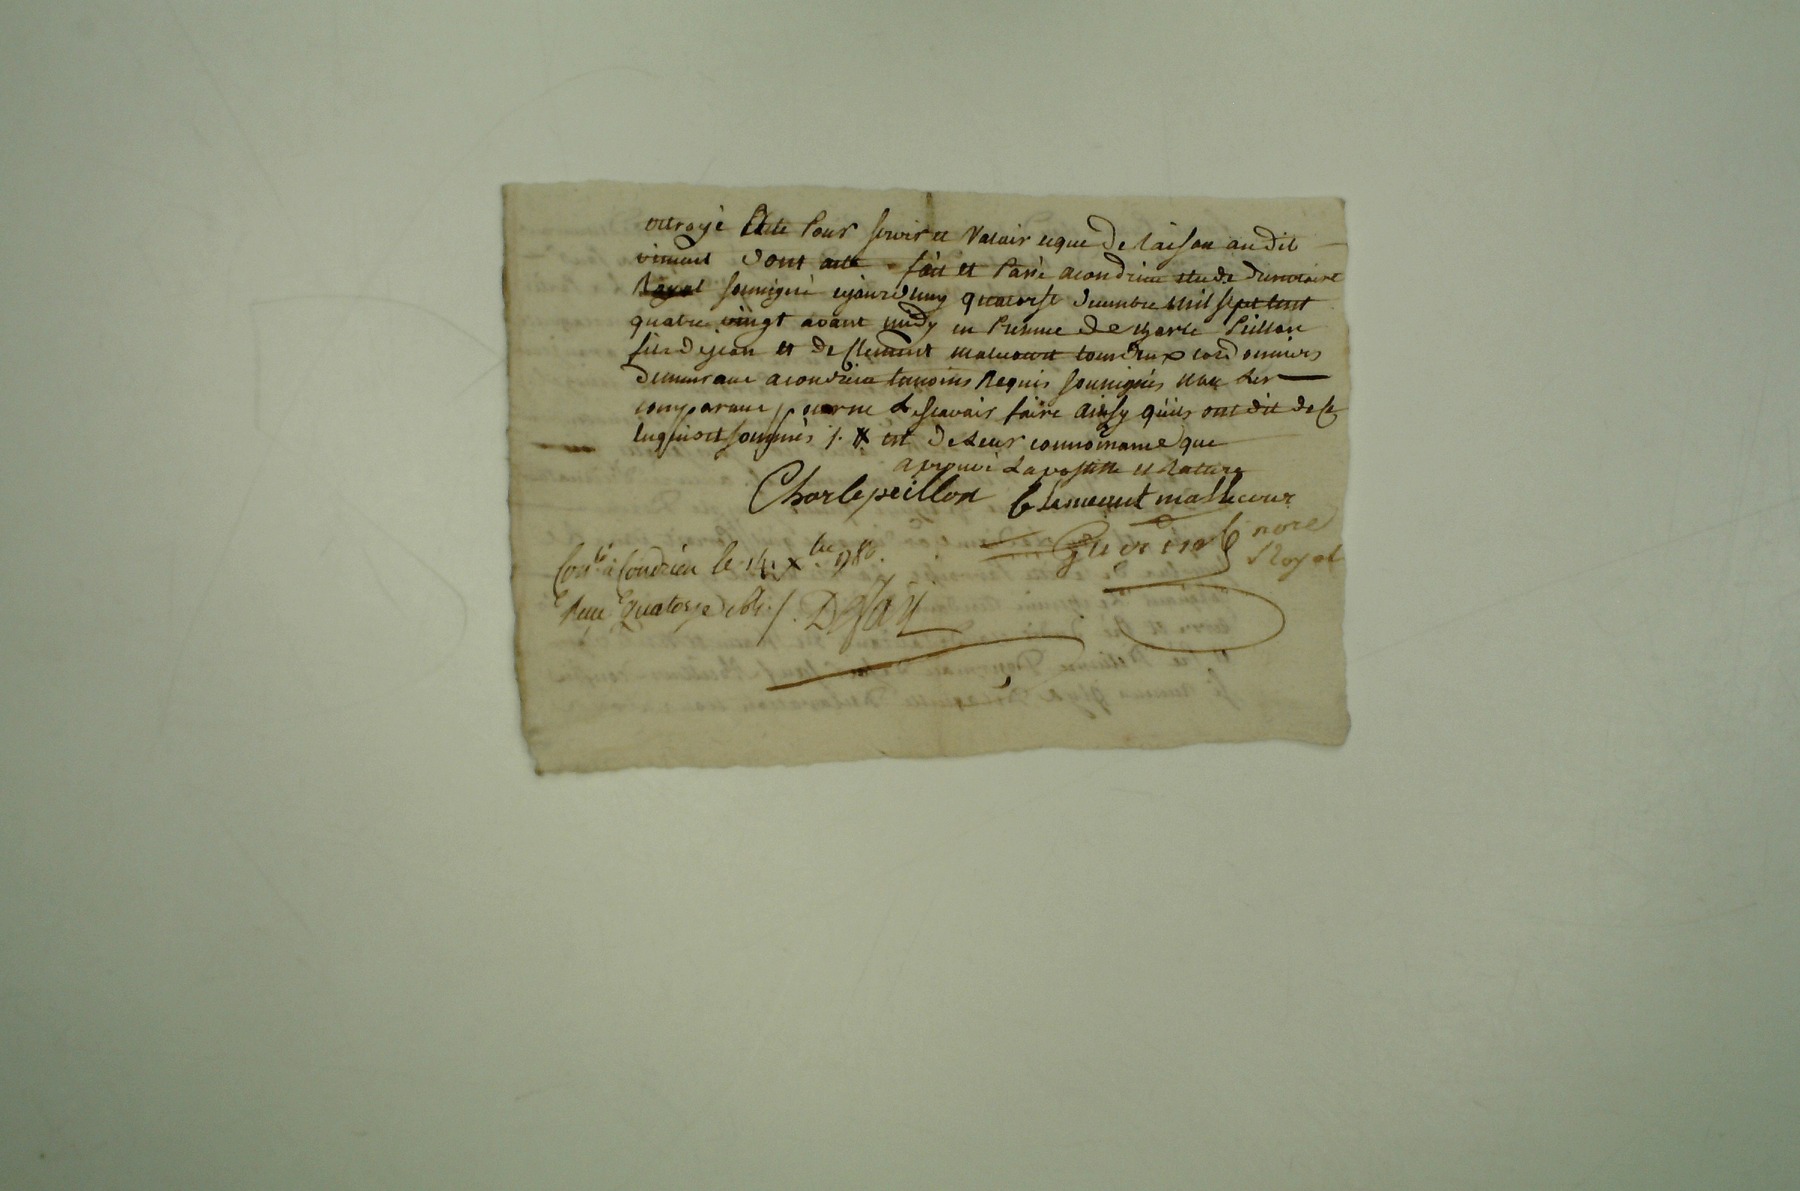 octroyé Acte pour servir et valoir ceque de raison audit
vincent dont acte fait et passé acondrieu etude dunotaire
Royal soussigné cejourdhuy quatorse decembre mil sept cent
quatre vingt avant midy en presence de charle peillon
fils dejean et de Clement malecourt tous deux cordonniers
demeurant acondrieu temoins Requis soussignés non les
comparant pour ne le scavoir faire ainsy quils ont dit de ce
enquis et sommés /. X est de leur connoissance que
aprouvé la postille et rature
Charle peillon Clement mallecour
Guerin nore
Royal
Conlé à Condrieu le 14 Xbre 1780.
Reçu quatorze sols /.